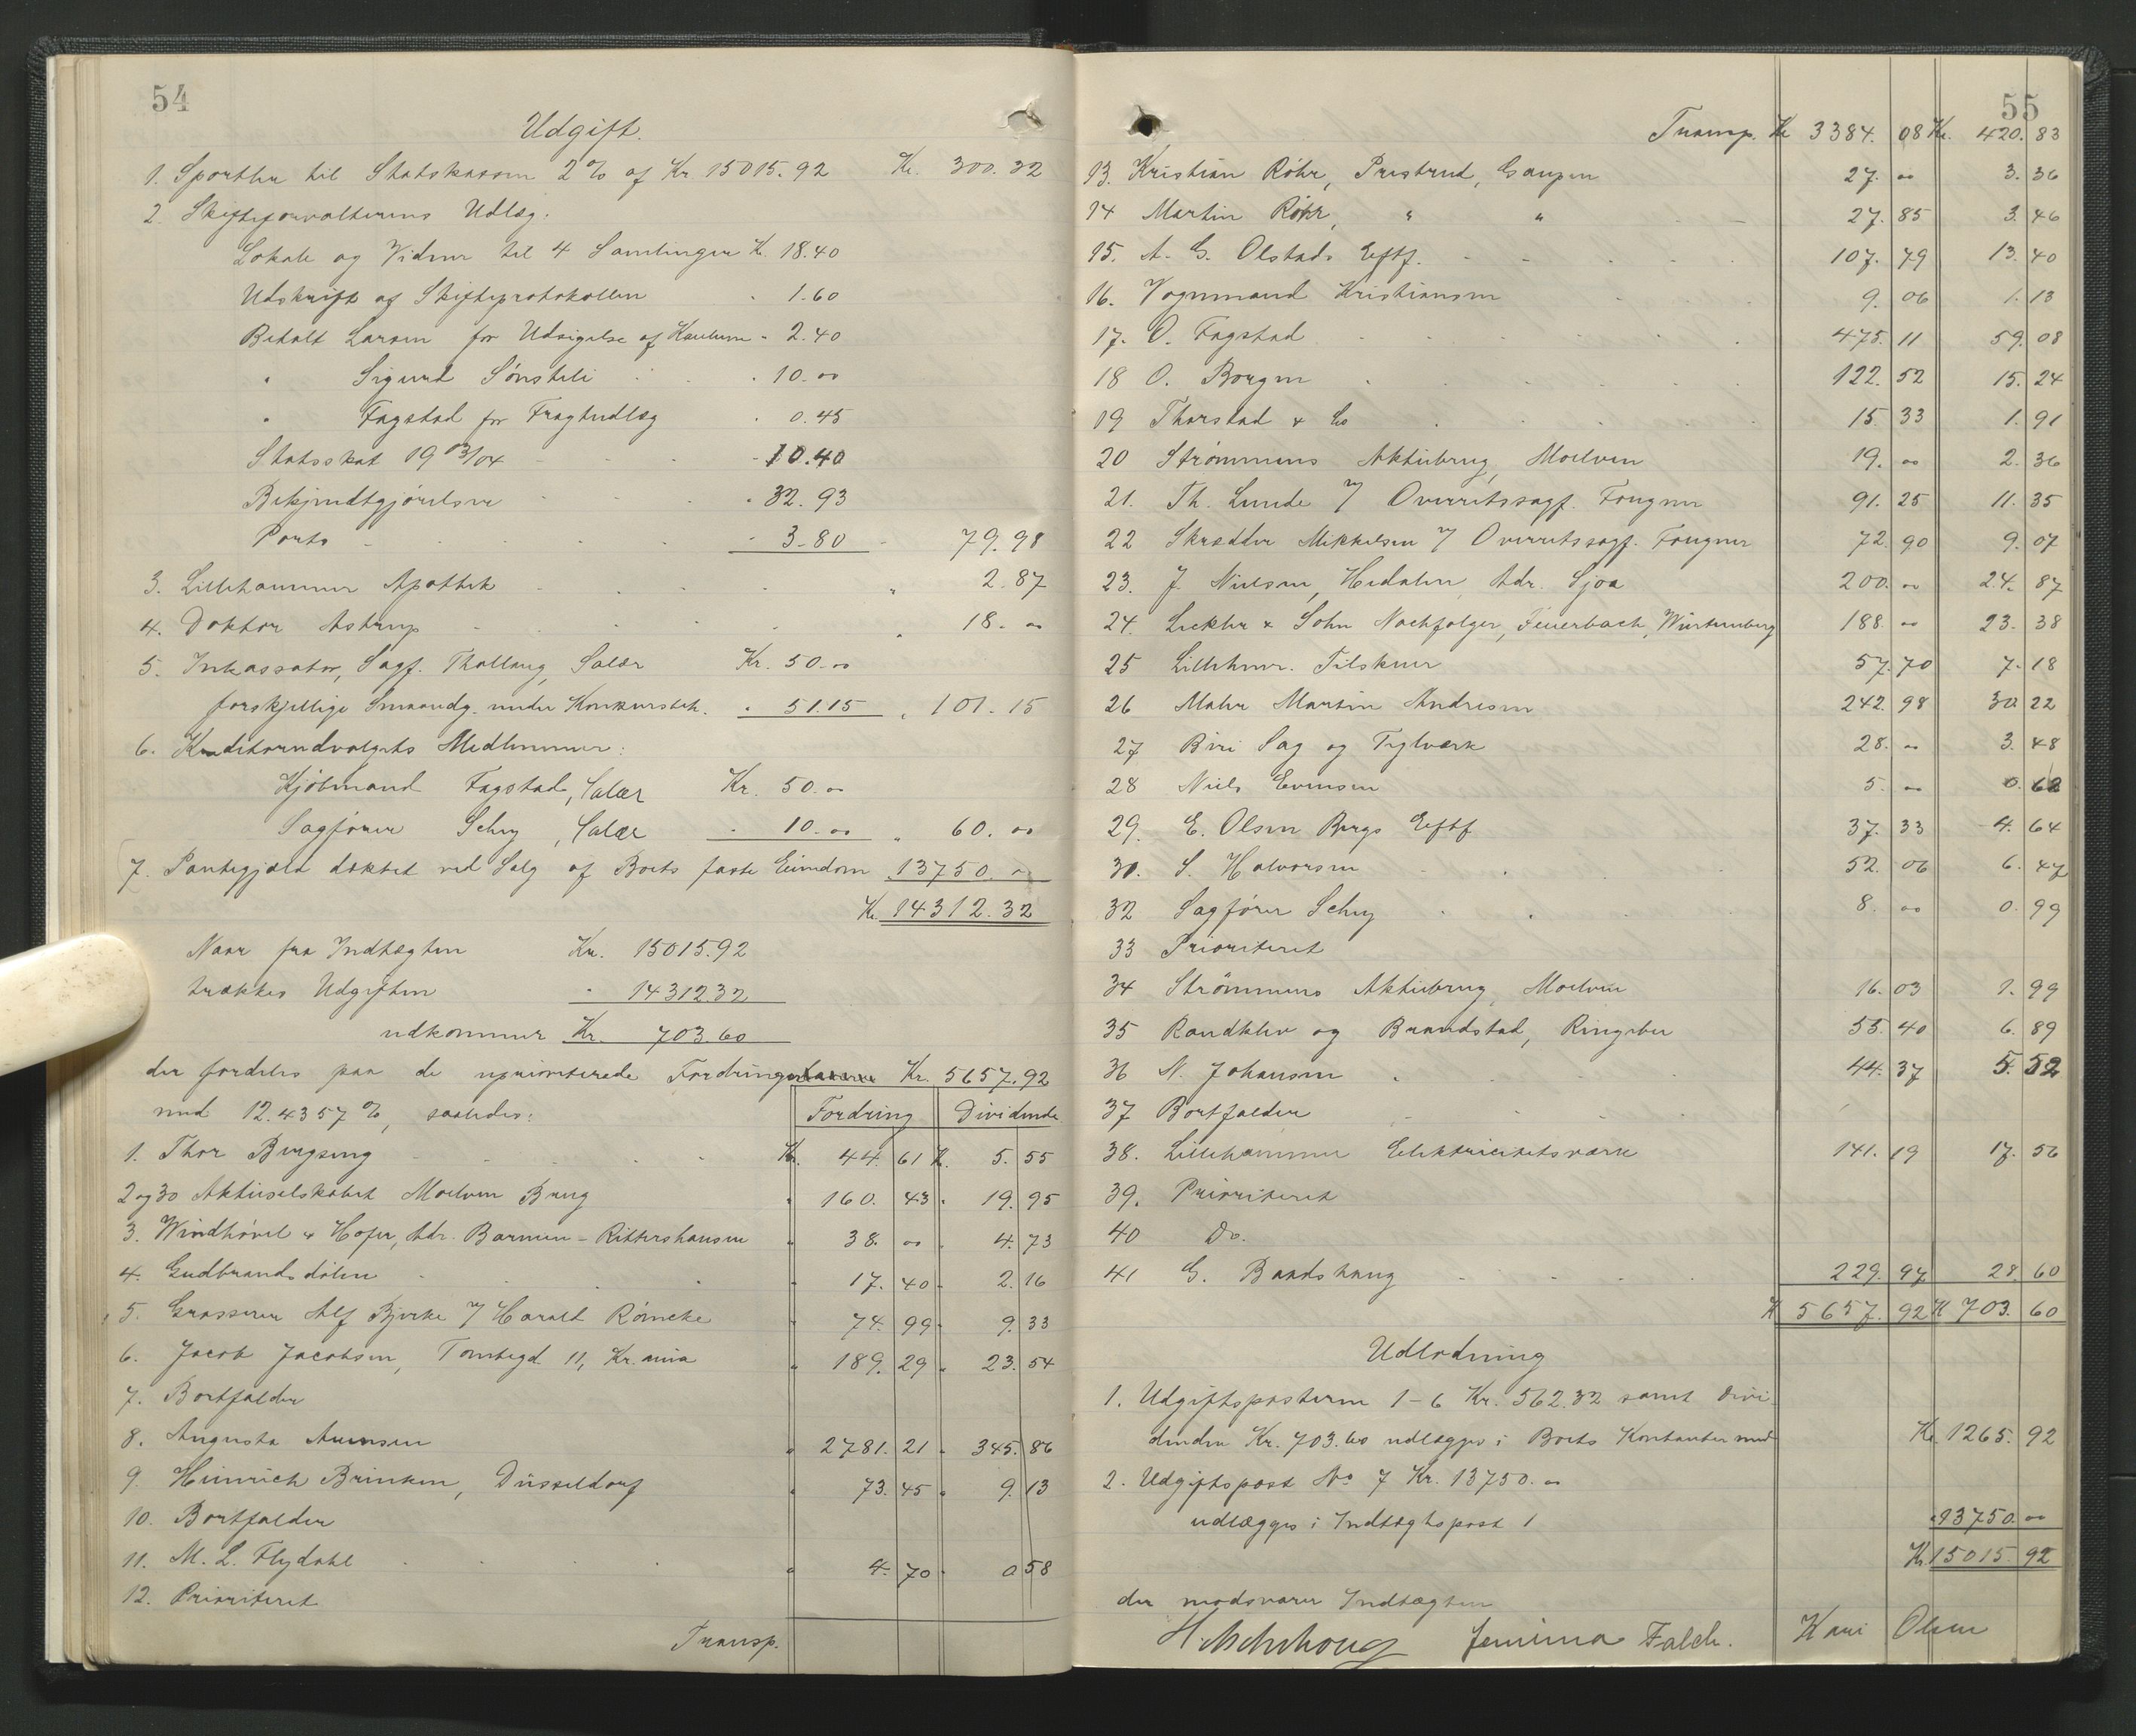 54
Udgift.
1. Sportler til Statskassen 2% af Kr. 15015.92 Kr. 300.32
2. Skifteforvalterens Udlæg.
Lokale og Vidner til 4 Samlinger Kr. 18.40
Udskrift af Skifteprotokollen " 1.60
Betalt Larsen for Udsigelse af Kautionen " 2.40
" Sigurd Sønsteli " 10.00
" Fagstad for Fragtudlæg " 0.45
Statsskat 1903/04 - 10.40
Bekjendtgjørelser " 32.93
Porto - 3.80 - 79.98
3. Lillehammer Apothek " 2.87
4. Doktor Astrup " 18.00
5. Inkassator, Sagf. Thallaug, Salær Kr. 50.00
forskjellige Smaaudg. under Konkursbeh. " 51.15 " 101.15
6. Kreditorudvalgets Medlemmer:
Kjøbmand Fagstad, Salær Kr. 50.00
Sagfører Schey, Salær - 10.00 " 60.00
7. Pantegjæld dækket ved Salg af Boets faste Eiendom 13750.00
Kr. 14312.32
Naar fra Indtægten Kr. 15015.92
trækkes Udgiften " 14312.32
udkommer Kr. 703.60
der fordeles paa de uprioriterede Fordringshavere Kr. 5657.92
med 12.4357%, saaledes:
Fordring Dividende
1. Thor Bergseng Kr. 44.61 K. 5.55
2 og 30 Aktieselskabet Moelven Brug " 160.43 " 19.95
3. Windhövel & Hofer, Adr. Barmen-Rittershausen " 38.00 " 4.73
4. Gudbrandsdølen " 17.40 " 2.16
5. Grosserer Alf Bjercke v/ Harald Römcke " 74.99 " 9.33
6. Jacob Jacobsen, Tomtegd. 11, Kr.ania " 189.29 " 23.54
7. Bortfalder
8. Augusta Aunsen " 2781.21 " 345.86
9. Heinrich Brinken, Düsseldorf " 73.45 " 9.13
10. Bortfalder
11. M. L. Flydahl " 4.70 " 0.58
12. Prioriteret
Transp.
55
Transp. Kr. 3384.08 Kr. 420.83
13. Kristian Röhr, Prestrud, Gaupen 27.00 3.36
14 Martin Röhr, " " 27.85 3.46
15. A. G. Olstads Eftf. 107.79 13.40
16. Vognmand Kristiansen 9.06 1.13
17. O. Fagstad 475.11 59.08
18 O. Borgen 122.52 15.24
19 Thorstad & Co 15.33 1.91
20 Strømmens Aktiebrug, Moelven 19.00 2.36
21. Th. Lunde v/ Overretssagf. Fougner 91.25 11.35
22 Skrædder Mikkelsen v/ Overretssagf. Fougner 72.90 9.07
23. J. Nielsen, Hedalen, Adr. Sjoa 200.00 24.87
24. Lechler & Sohn Nachfolger, Feuerbach, Würtemberg 188.00 23.38
25 Lillehmr. Tilskuer 57.70 7.18
26 Maler Martin Andresen 242.98 30.22
27 Biri Sag og Teglværk 28.00 3.48
28 Niels Evensen 5.00 0.62
29. E. Olsen Bergs Eftf 37.33 4.64
30. S. Halvorsen 52.06 6.47
32 Sagfører Schey 8.00 0.99
33 Prioriteret
34 Strømmens Aktiebrug, Moelven 16.03 1.99
35 Randklev og Brandstad, Ringebu 55.40 6.89
36 N. Johansen 44.37 5.52
37 Bortfalder
38. Lillehammer Elektricitetsværk 141.19 17.56
39. Prioriteret
40 Do.
41 G. Baadshaug 229.97 28.60
K 5657.92 K 703.60
Udlodning
1. Udgiftsposterne 1-6 Kr. 562.32 samt Divi-
denden Kr. 703.60 udlægges i Boets Kontanter med Kr. 1265.92
2. Udgiftspost No 7 Kr. 13750.00
udlægges i Indtægtspost 1 " 13750.00
Kr. 15015.92
der modsvarer Indtægten
Jemima Falch. Kari Olsen